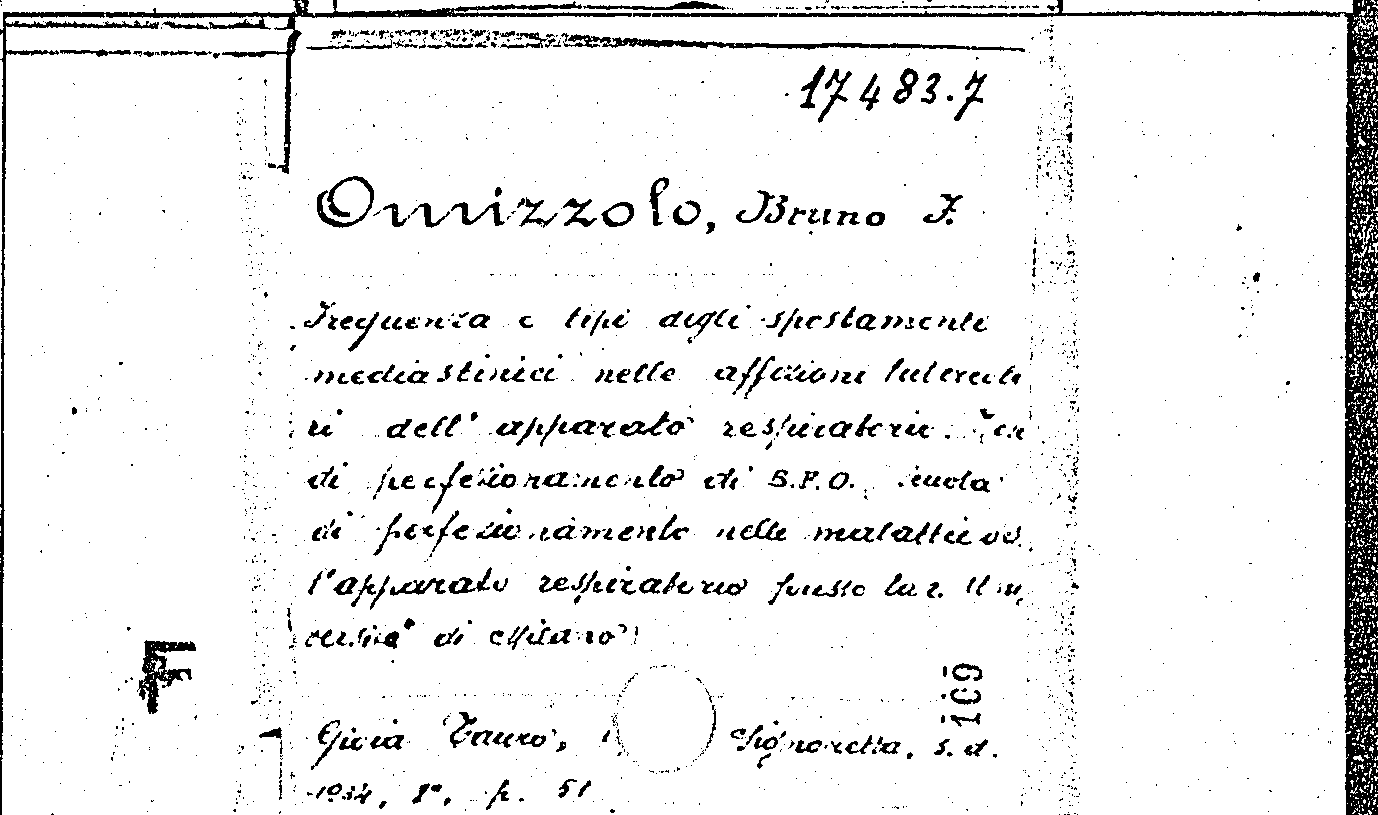 17483.7
Omizzolo, Bruno F.
Frequenza e tipi degli spostamenti
mediastinici nelle affezioni tuberco
ri dell' apparato respiratorio.
di perfezionamento di S.F.O. scuola
di perfezionamento nelle malattie del
l'apparato respiratorio presso la r. Uni
versità di Milano)
F
109
Gioia Tauro, Signoretta, s. d.
1934, 8°, p. 51